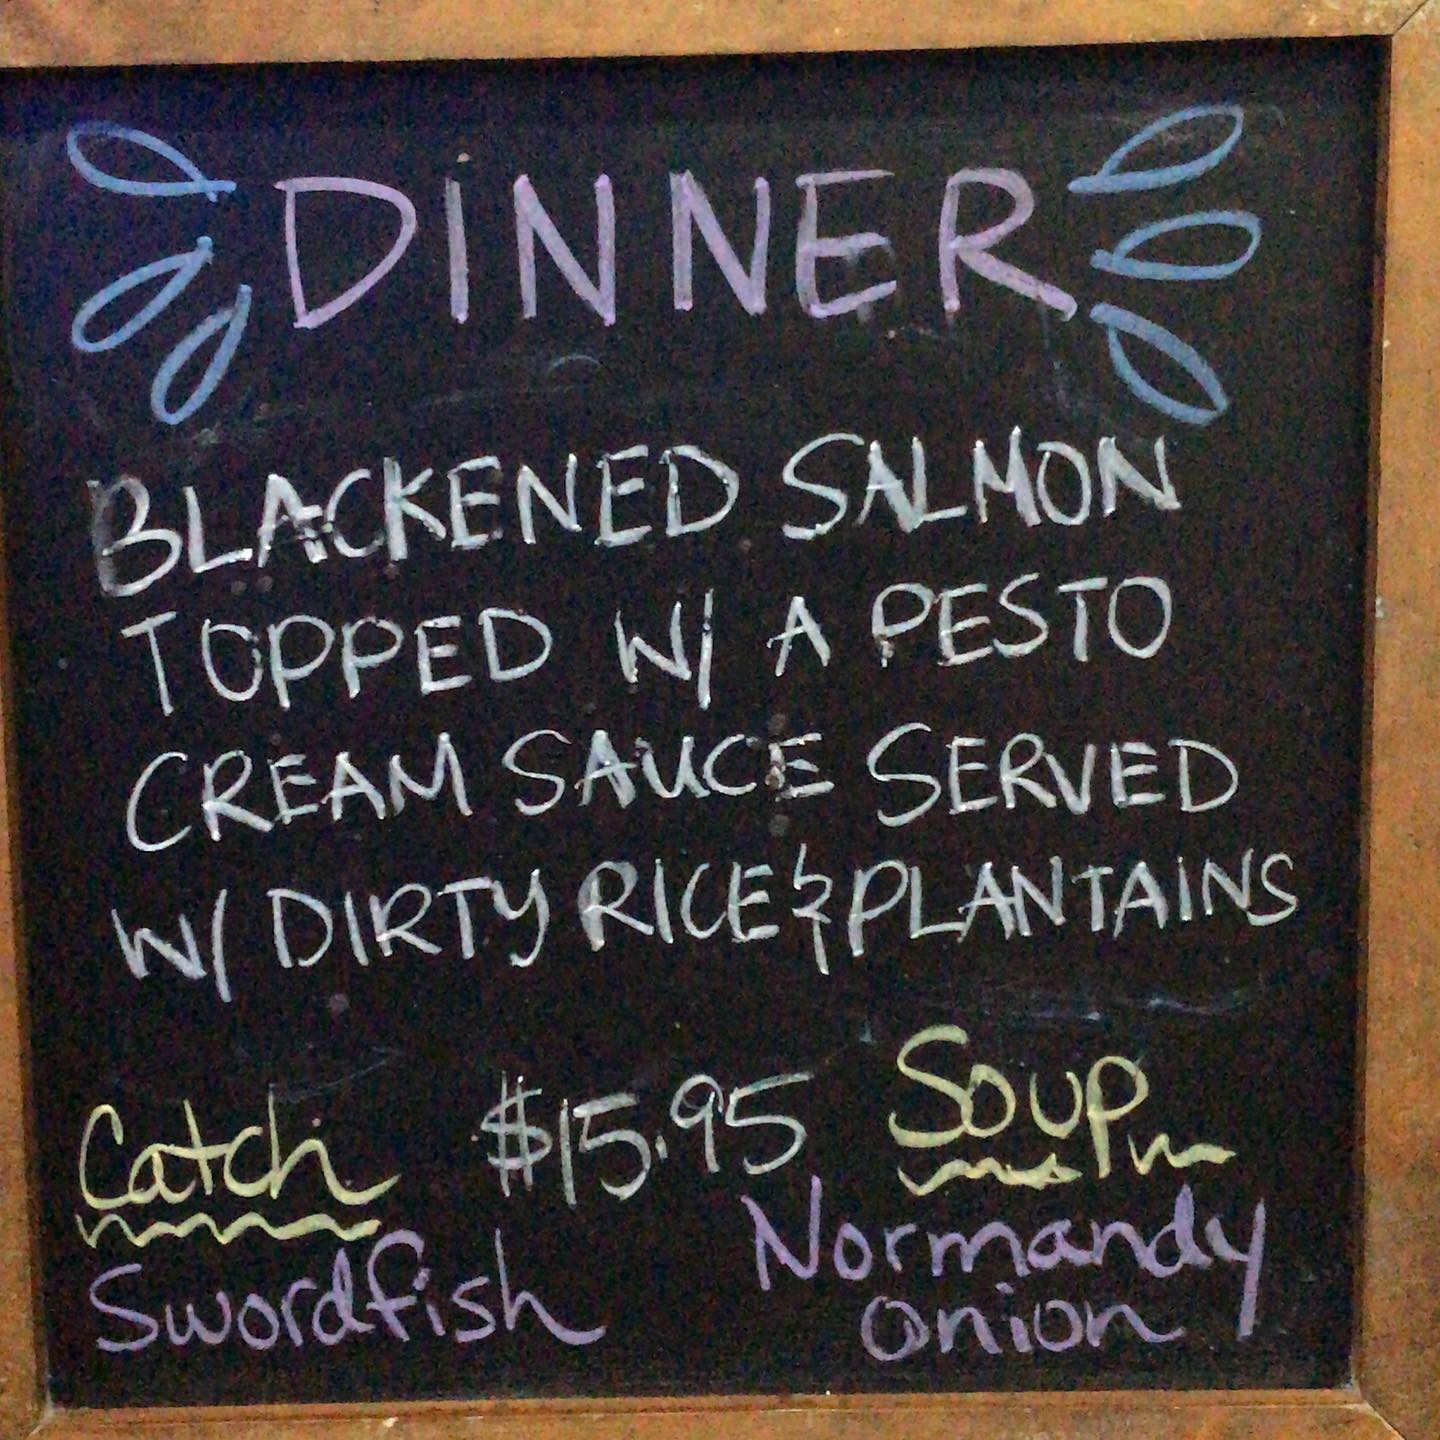 DINNER
BLACKENED SALMON
TOPPED W/ A PESTO
CREAM SAUCE SERVED
W/ DIRTY RICE & PLANTAINS
$15.95
Catch
Swordfish
Soup
Normandy
onion